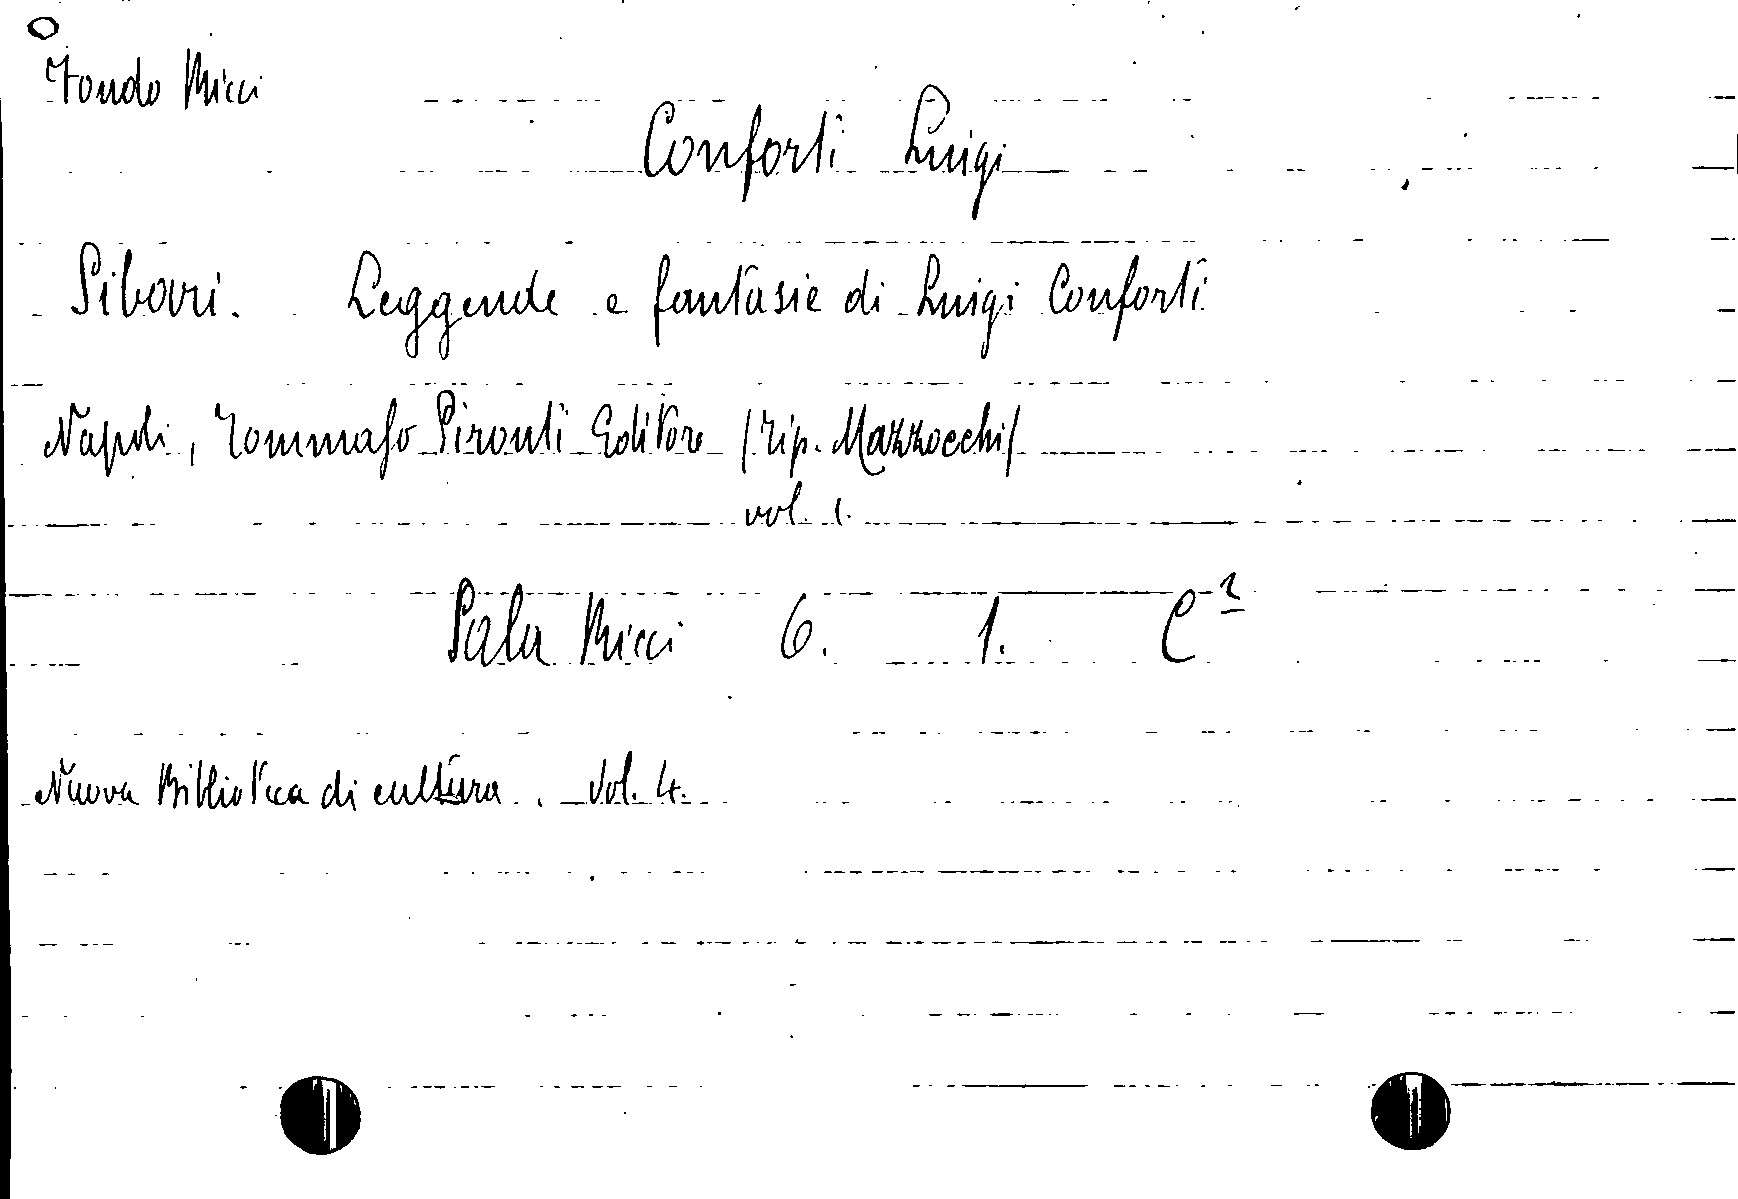 Fondo Ricci
Conforti Luigi
Sibari. Leggende e fantasie di Luigi Conforti
Napoli, Tommaso Pironti Editore (Tip. Mazzocchi)
vol. 1.
Sala Ricci 6. 1. C²
Nuova Biblioteca di cultura. Vol. 4.